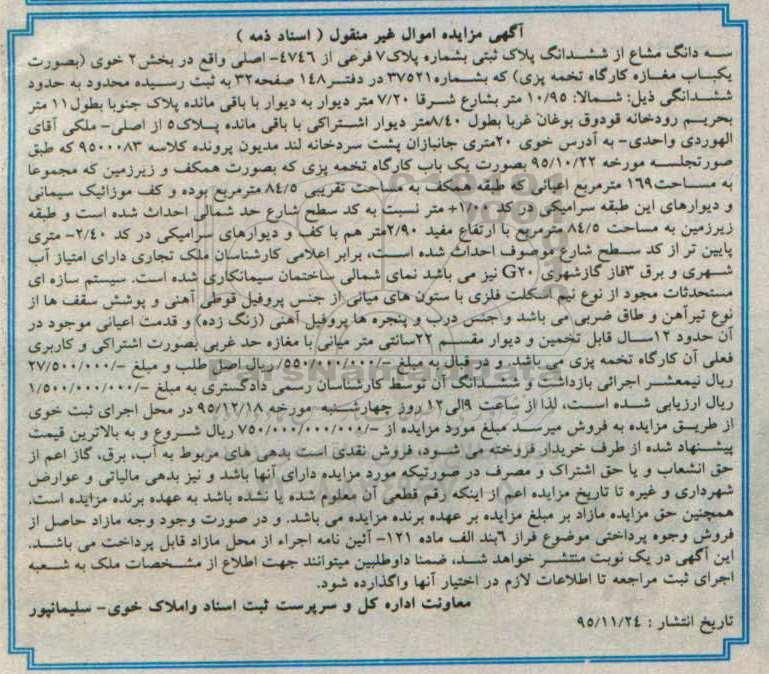 آگهی مزایده اموال غیر منقول ( اسناد ذمه )
سه دانگ مشاع از ششدانگ پلاک ثبتی بشماره پلاک۷ فرعی از ۴۷۴۶- اصلی واقع در بخش۲ خوی (بصورت
یکباب مغازه کارگاه تخمه پزی) که بشماره۳۷۵۲۱ در دفتر۱۴۸ صفحه۳۲ به ثبت رسیده محدود به حدود
ششدانگی ذیل: شمالا: ۱۰/۹۵ متر بشارع شرقا ۷/۲۰ متر دیوار به دیوار با باقی مانده پلاک جنوبا بطول۱۱ متر
بحریم رودخانه قودوق بوغان غربا بطول ۸/۴۰متر دیوار اشتراکی با باقی مانده پلاک۵ از اصلی- ملکی آقای
الهوردی واحدی- به آدرس خوی ۲۰متری جانبازان پشت سردخانه لند مدیون پرونده کلاسه ۹۵۰۰۰۸۳ که طبق
صورتجلسه مورخه ۹۵/۱۰/۲۲ بصورت یک باب کارگاه تخمه پزی که بصورت همکف و زیرزمین که مجموعا
به مساحت۱۶۹ مترمربع اعیانی که طبقه همکف به مساحت تقریبی ۸۴/۵ مترمربع بوده و کف موزائیک سیمانی
و دیوارهای این طبقه سرامیکی در کد ۱/۰۰+ متر نسبت به کد سطح شارع حد شمالی احداث شده است و طبقه
زیرزمین به مساحت ۸۴/۵ مترمربع با ارتفاع مفید ۲/۹۰متر هم با کف و دیوارهای سرامیکی در کد ۲/۴۰- متری
پایین تر از کد سطح شارع موصوف احداث شده است، برابر اعلامی کارشناسان ملک تجاری دارای امتیاز آب
شهری و برق ۳فاز گازشهری G۲۰ نیز می باشد نمای شمالی ساختمان سیمانکاری شده است. سیستم سازه ای
مستحدثات مجود از نوع نیم اسکلت فلزی با ستون های میانی از جنس پروفیل قوطی آهنی و پوشش سقف ها از
نوع تیرآهن و طاق ضربی می باشد و جنس درب و پنجره ها پروفیل آهنی (زنگ زده) و قدمت اعیانی موجود در
آن حدود ۱۲سال قابل تخمین و دیوار مقسم ۲۲سانتی متر میانی با مغازه حد غربی بصورت اشتراکی و کاربری
فعلی آن کارگاه تخمه پزی می باشد. و در قبال به مبلغ -/۵۵۰/۰۰۰/۰۰۰ ریال اصل طلب و مبلغ -/۲۷/۵۰۰/۰۰۰
ریال نیمعشر اجرائی بازداشت و ششدانگ آن توسط کارشناسان رسمی دادگستری به مبلغ -/۱/۵۰۰/۰۰۰/۰۰۰
ریال ارزیابی شده است، لذا از ساعت ۹الی۱۲ روز چهارشنبه مورخه ۹۵/۱۲/۱۸ در محل اجرای ثبت خوی
از طریق مزایده به فروش میرسد مبلغ مورد مزایده از -/۷۵۰/۰۰۰/۰۰۰/۰۰۰ ریال شروع و به بالاترین قیمت
پیشنهاد شده از طرف خریدار فروخته می شود، فروش نقدی است بدهی های مربوط به آب، برق، گاز اعم از
حق انشعاب و یا حق اشتراک و مصرف در صورتیکه مورد مزایده دارای آنها باشد و نیز بدهی مالیاتی و عوارض
شهرداری و غیره تا تاریخ مزایده اعم از اینکه رقم قطعی آن معلوم شده یا نشده باشد به عهده برنده مزایده است.
همچنین حق مزایده مازاد بر مبلغ مزایده بر عهده برنده مزایده می باشد. و در صورت وجود وجه مازاد حاصل از
فروش وجوه پرداختی موضوع فراز ۶بند الف ماده ۱۲۱- آئین نامه اجراء از محل مازاد قابل پرداخت می باشد.
این آگهی در یک نوبت منتشر خواهد شد، ضمنا داوطلبین میتوانند جهت اطلاع از مشخصات ملک به شعبه
اجرای ثبت مراجعه تا اطلاعات لازم در اختیار آنها واگذارده شود.
معاونت اداره کل و سرپرست ثبت اسناد واملاک خوی- سلیمانپور
تاریخ انتشار : ۹۵/۱۱/۲۴
ParsNamadData